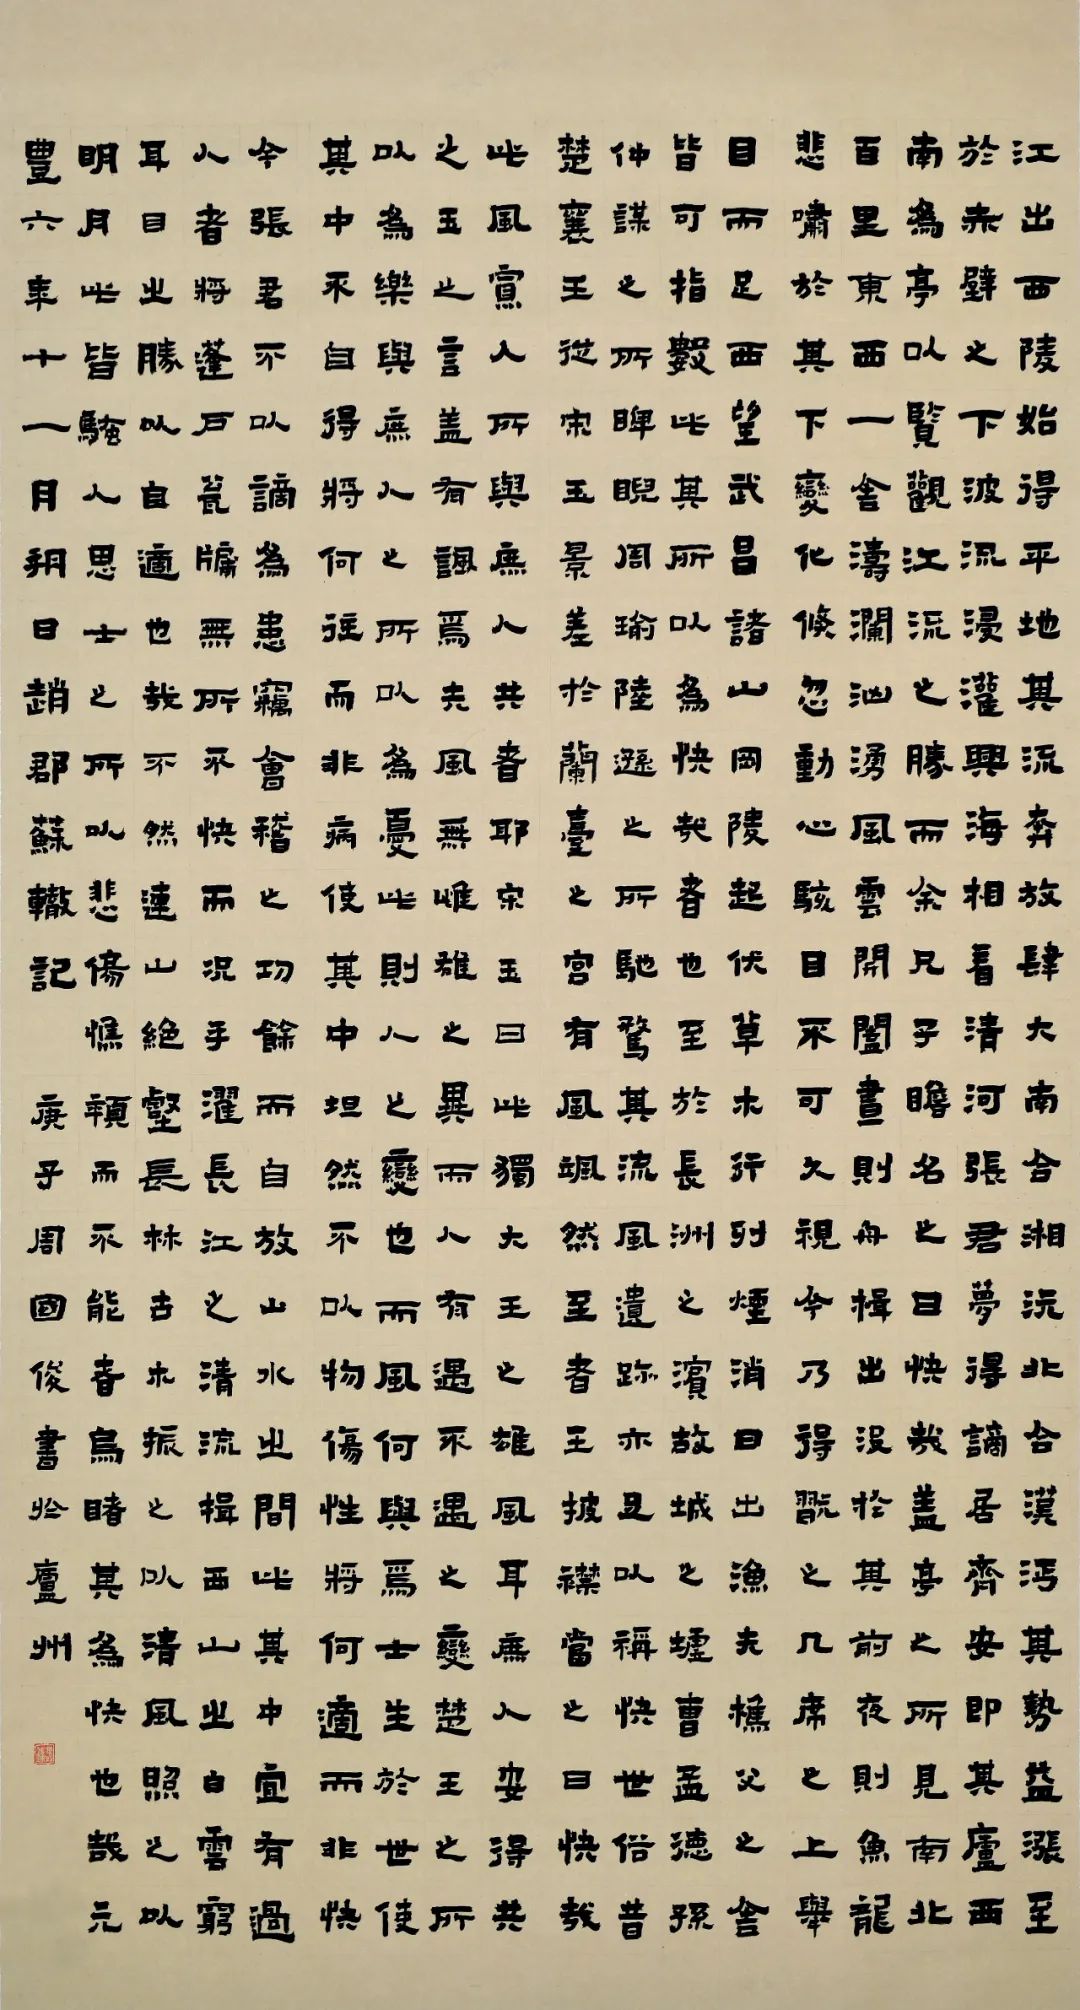 江出西陵始得平地其流奔放肆大南合湘沅北合漢沔其勢益漲至
於赤壁之下波流浸灌與海相若清河張君夢得謫居齊安即其廬西
南為亭以覽觀江流之勝而余兄子瞻名之曰快哉蓋亭之所見南北
百里東西一舍濤瀾洶湧風雲開闔晝則舟楫出沒於其前夜則魚龍
悲嘯於其下變化倏忽動心駭目不可久視今乃得翫之几席之上舉
目而足西望武昌諸山岡陵起伏草木行列煙消日出漁夫樵父之舍
皆可指數此其所以為快哉者也至於長洲之濱故城之墟曹孟德孫
仲謀之所睥睨周瑜陸遜之所馳騖其流風遺跡亦足以稱快世俗昔
楚襄王從宋玉景差於蘭臺之宮有風颯然至者王披襟當之曰快哉
此風寡人所與庶人共者耶宋玉曰此獨大王之雄風耳庶人安得共
之玉之言蓋有諷焉夫風無雌雄之異而人有遇不遇之變楚王之所
以為樂與庶人之所以為憂此則人之變也而風何與焉士生於世使
其中不自得將何往而非病使其中坦然不以物傷性將何適而非快
今張君不以謫為患竊會稽之功餘而自放山水之間此其中宜有過
人者將蓬戶甕牖無所不快而況乎濯長江之清流揖西山之白雲窮
耳目之勝以自適也哉不然連山絕壑長林古木振之以清風照之以
明月此皆騷人思士之所以悲傷憔顇而不能者烏睹其為快也哉元
豐六年十一月朔日趙郡蘇轍記 庚子周國俊書於廬州